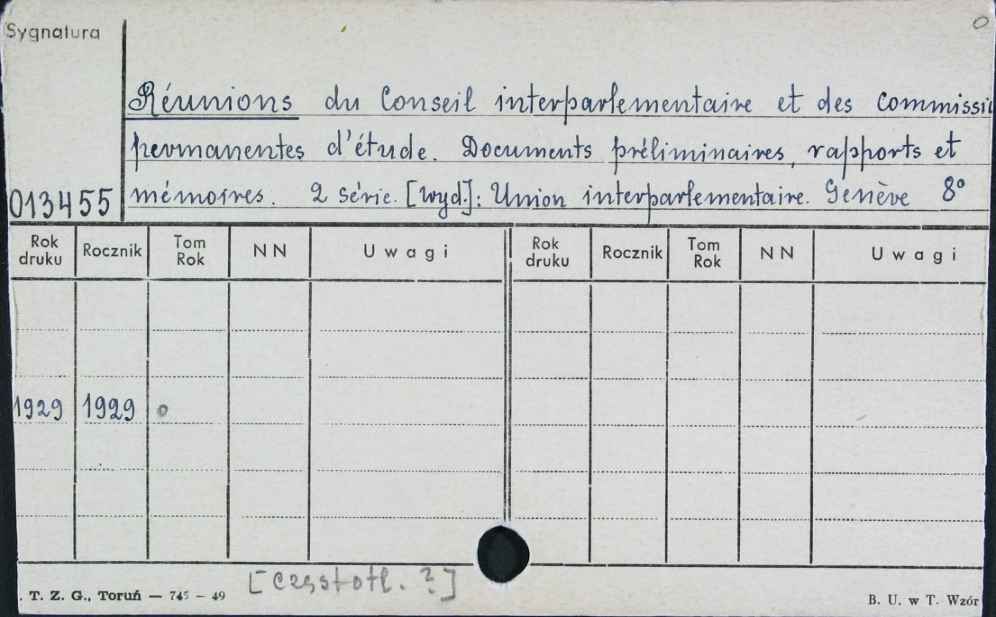 Sygnatura
Réunions du Conseil interparlementaire et des commissi
permanentes d'étude. Documents préliminaires, rapports et
013455 mémoires. 2 série. [wyd.]: Union interparlementaire. Genève 8°
Rok druku Rocznik Tom Rok NN Uwagi Rok druku Rocznik Tom Rok NN Uwagi
1929 1929
[Częstotl. ?]
. T. Z. G., Toruń — 745 — 49
B. U. w T. Wzór